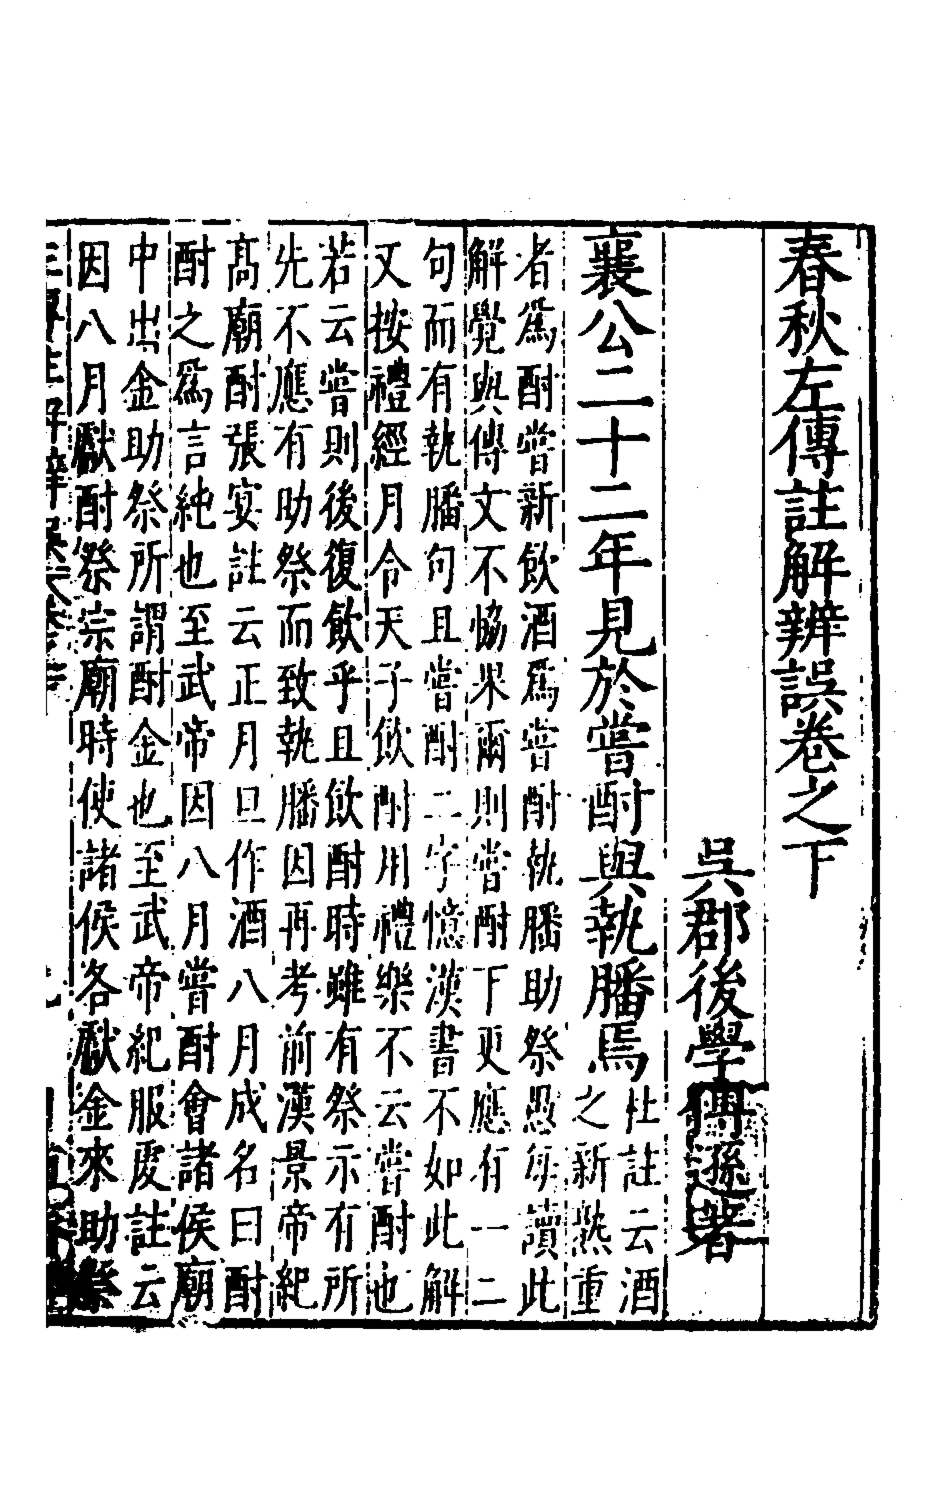 春秋左傳註解辨誤卷之下
吳郡後學傅遜著
襄公二十二年見於嘗酎與執膰焉杜註云酒
之新熟重
者爲酎嘗新飲酒爲嘗酎執膰助祭愚每讀此
解覺與傳文不恊果爾則嘗酎下更應有一二
句而有執膰句且嘗酎二字憶漢書不如此解
又按禮經月令天子飲酎用禮樂不云嘗酎也
若云嘗則後復飲乎且飲酎時雖有祭示有所
先不應有助祭而致執膰因再考前漢景帝紀
髙廟酎張晏註云正月旦作酒八月成名曰酎
酎之爲言純也至武帝因八月嘗酎會諸侯廟
中出金助祭所謂酎金也至武帝紀服虔註云
因八月獻酎祭宗廟時使諸侯各獻金來助祭